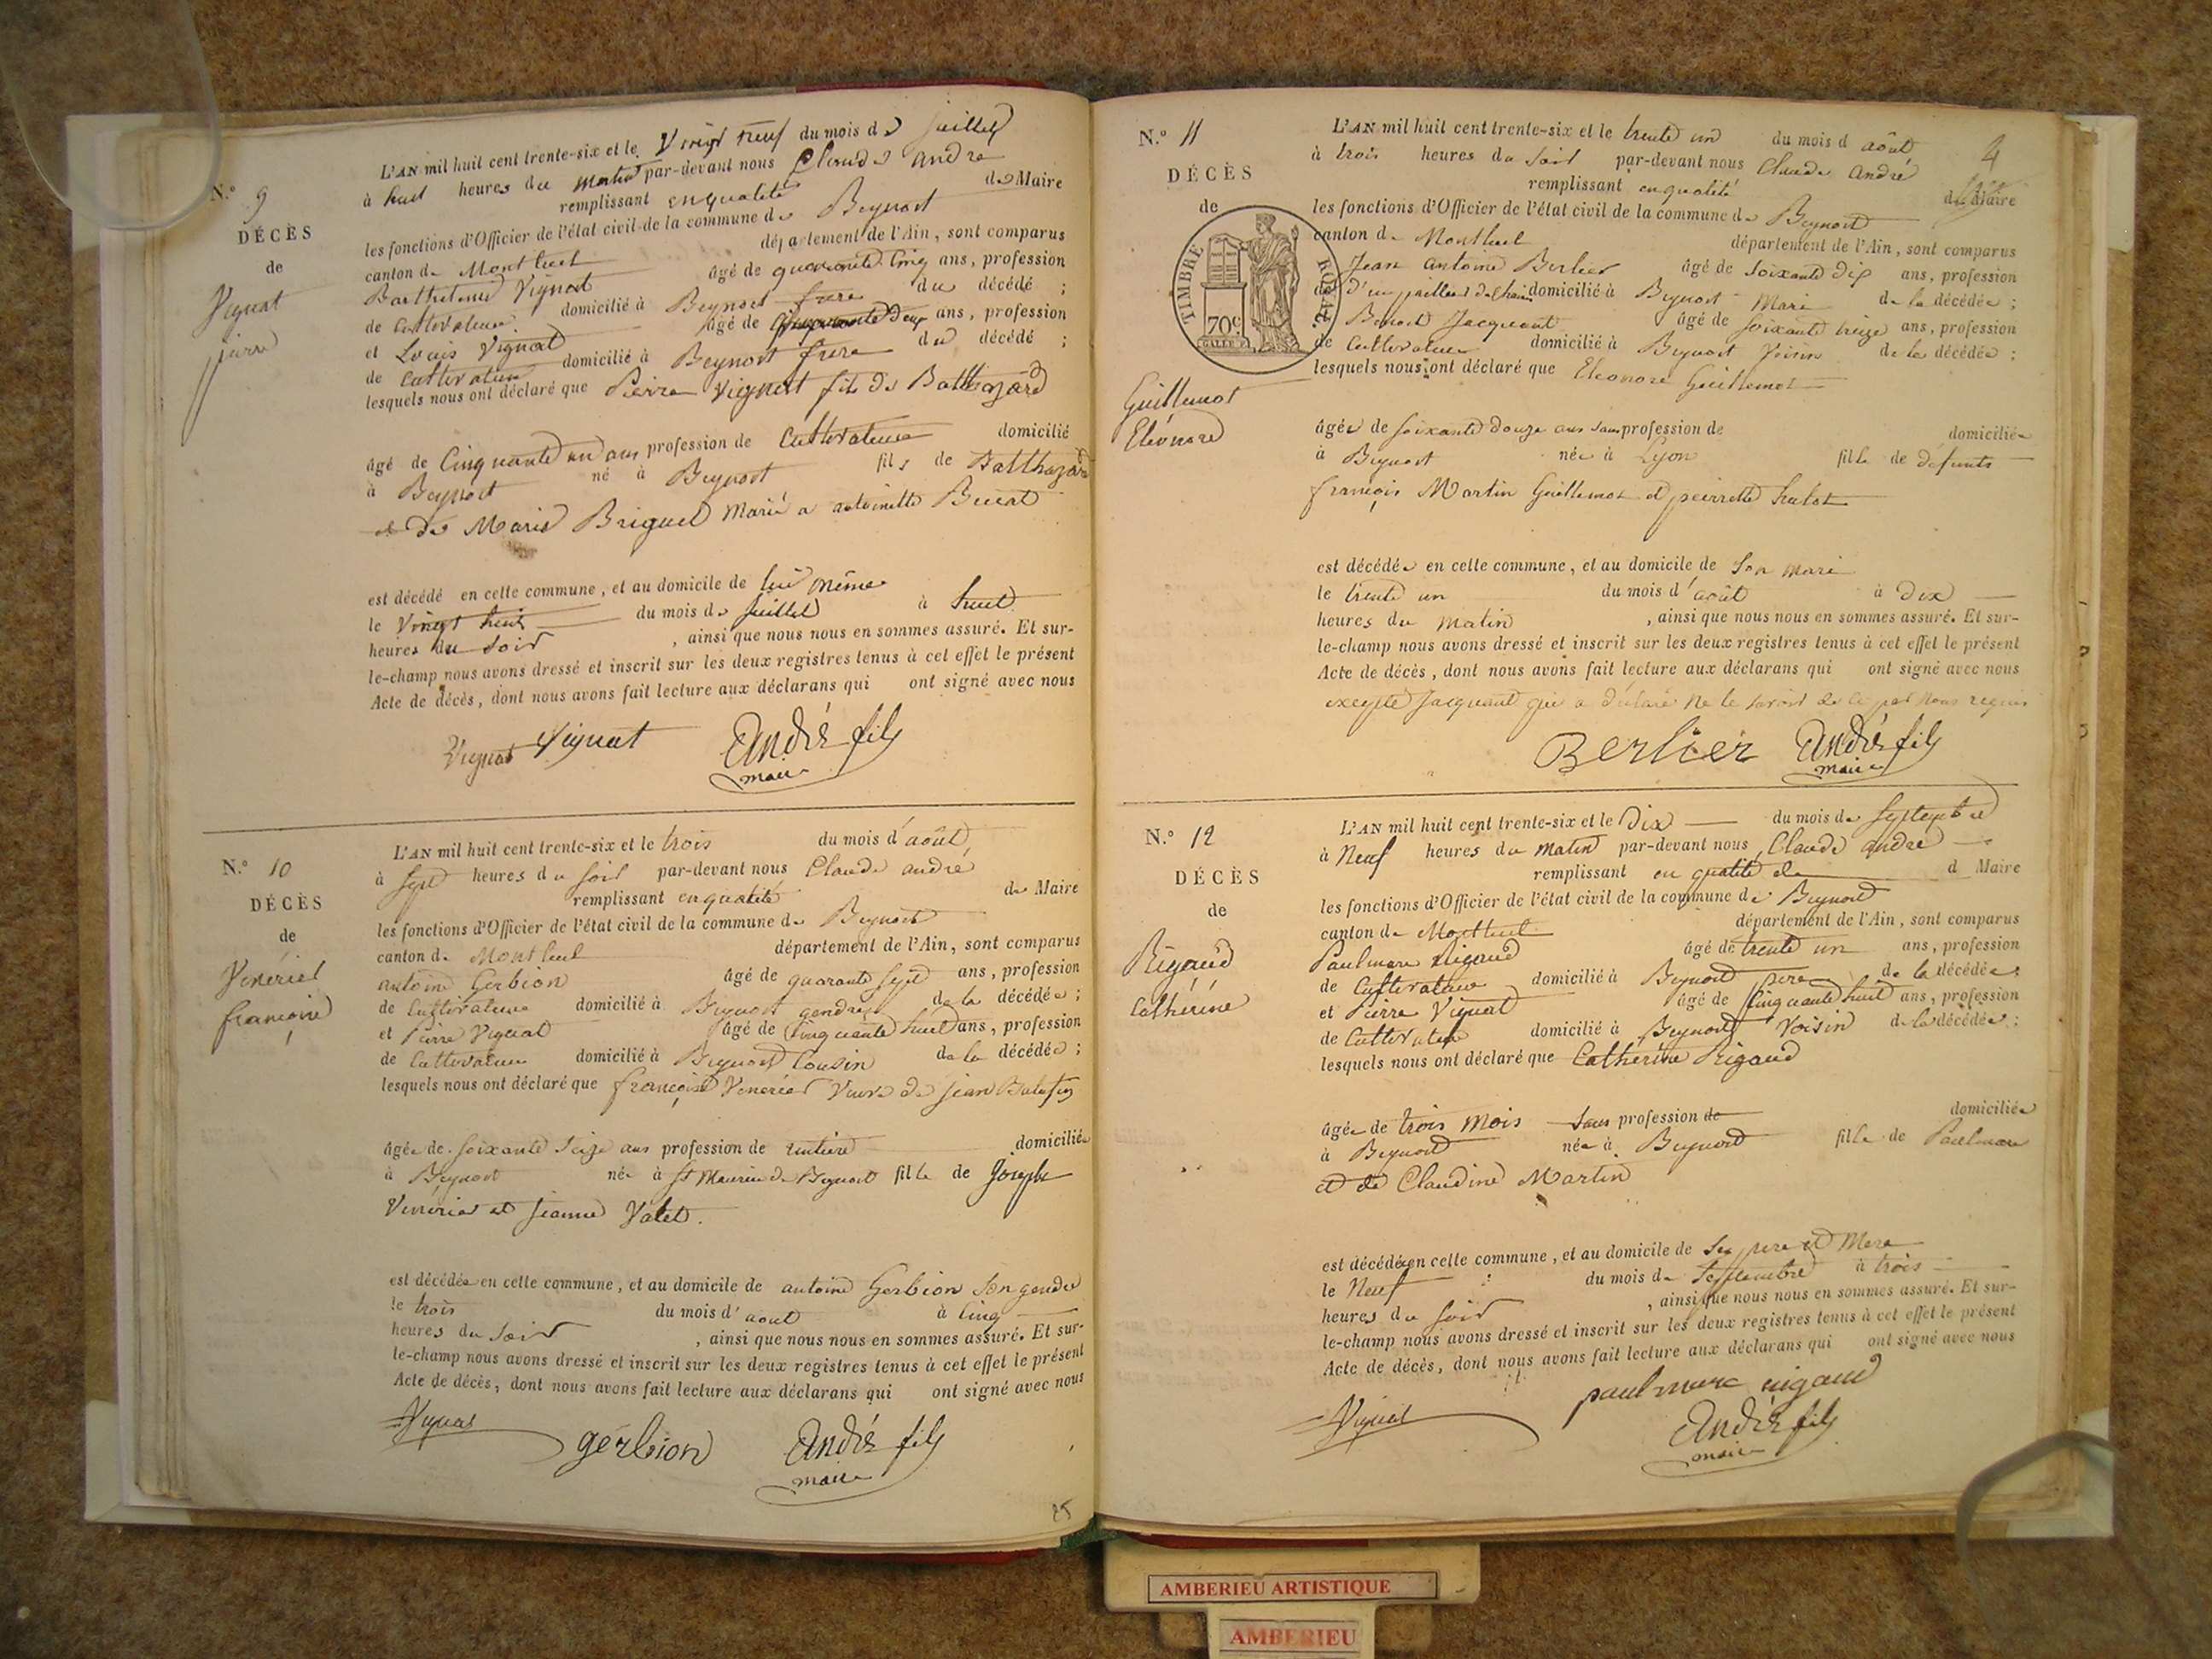 N.º 9
DÉCÈS
de
Vignat
pierre
L'AN mil huit cent trente-six et le Vingt neuf du mois de juillet
à huit heures du matin par-devant nous Claude andré
remplissant en qualité de Maire
les fonctions d'Officier de l'état civil de la commune de Beynost
canton de Montluel département de l'Ain, sont comparus
Barthelemi Vignat âgé de quarante cinq ans, profession
de Cultivateur domicilié à Beynost frere du décédé ;
et Louis Vignat âgé de ans, profession
de Cultivateur domicilié à Beynost frere du décédé ;
lesquels nous ont déclaré que Pierre Vignat fils de Balthazard
âgé de Cinquante un ans profession de Cultivateur domicilié
à Beynost né à Beynost fils de Balthazard
et de Marie Briguel Marié a antoinette
est décédé en cette commune, et au domicile de lui même
le Vingt huit du mois de juillet à huit
heures du Soir , ainsi que nous nous en sommes assuré. Et sur-
le-champ nous avons dressé et inscrit sur les deux registres tenus à cet effet le présent
Acte de décès, dont nous avons fait lecture aux déclarans qui ont signé avec nous
Vignat Vignat André fils
maire
N.º 10
DÉCÈS
de
Venériel
françoise
L'AN mil huit cent trente-six et le trois du mois d'août,
à Sept heures du soir par-devant nous Claude andré
remplissant en qualité de Maire
les fonctions d'Officier de l'état civil de la commune de Beynost
canton de Montluel département de l'Ain, sont comparus
antoine Gerbion âgé de quarante Sept ans, profession
de Cultivateur domicilié à Beynost gendre de la décédée ;
et Pierre Vignat âgé de Cinquante huit ans, profession
de Cultivateur domicilié à Beynost Cousin de la décédée ;
lesquels nous ont déclaré que françoise Venériel Veuve de jean
âgée de Soixante Seize ans profession de rentiere domiciliée
à Beynost née à St Maurice de Beynost fille de Joseph
Venériel et jeanne Valet.
est décédée en cette commune, et au domicile de antoine Gerbion Son gendre
le trois du mois d'aout à Cinq
heures du Soir , ainsi que nous nous en sommes assuré. Et sur-
le-champ nous avons dressé et inscrit sur les deux registres tenus à cet effet le présent
Acte de décès, dont nous avons fait lecture aux déclarans qui ont signé avec nous
Vignat gerbion André fils
maire
25
4
N.º 11
DÉCÈS
de
TIMBRE ROYAL.
70c
Guillemot
Eléonore
L'AN mil huit cent trente-six et le trente un du mois d août
à trois heures du Soir par-devant nous Claude André
remplissant en qualité de Maire
les fonctions d'Officier de l'état civil de la commune de Beynost
canton de Montluel département de l'Ain, sont comparus
Jean Antoine Berlier âgé de Soixante dix ans, profession
domicilié à Beynost Mari de la décédée ;
Benoit Jacquant âgé de Soixante treize ans, profession
de Cultivateur domicilié à Beynost Voisin de la décédée ;
lesquels nous ont déclaré que Eleonore Guillemot
âgée de Soixante douze ans sans profession de domiciliée
à Beynost née à Lyon fille de défunts
françois Martin Guillemot et peirrette hulot
est décédée en cette commune, et au domicile de Son mari
le trente un du mois d'août à dix
heures du Matin , ainsi que nous nous en sommes assuré. Et sur-
le-champ nous avons dressé et inscrit sur les deux registres tenus à cet effet le présent
Acte de décès, dont nous avons fait lecture aux déclarans qui ont signé avec nous
excepté Jacquant qui a déclaré ne le savoir de ce par nous requis
Berlier André fils
maire
N.º 12
DÉCÈS
de
Rigaud
Cathérine
L'AN mil huit cent trente-six et le Dix du mois de Septembre
à Neuf heures du matin par-devant nous Claude andré
remplissant en qualité de d Maire
les fonctions d'Officier de l'état civil de la commune de Beynost
canton de Montluel département de l'Ain, sont comparus
Paulmarc Rigaud âgé de trente un ans, profession
de Cultivateur domicilié à Beynost pere de la décédée ;
et Pierre Vignat âgé de Cinquante huit ans, profession
de Cultivateur domicilié à Beynost Voisin de la décédée ;
lesquels nous ont déclaré que Cathérine Rigaud
âgée de trois Mois Sans profession de domiciliée
à Beynost née à Beynost fille de Paulmarc
et de Claudine Martin
est décédée en cette commune, et au domicile de Ses pere et Mere
le Neuf du mois de Septembre à trois
heures du soir , ainsi que nous nous en sommes assuré. Et sur-
le-champ nous avons dressé et inscrit sur les deux registres tenus à cet effet le présent
Acte de décès, dont nous avons fait lecture aux déclarans qui ont signé avec nous
Vignat paul marc rigaud
André fils
maire
AMBERIEU ARTISTIQUE
AMBERIEU